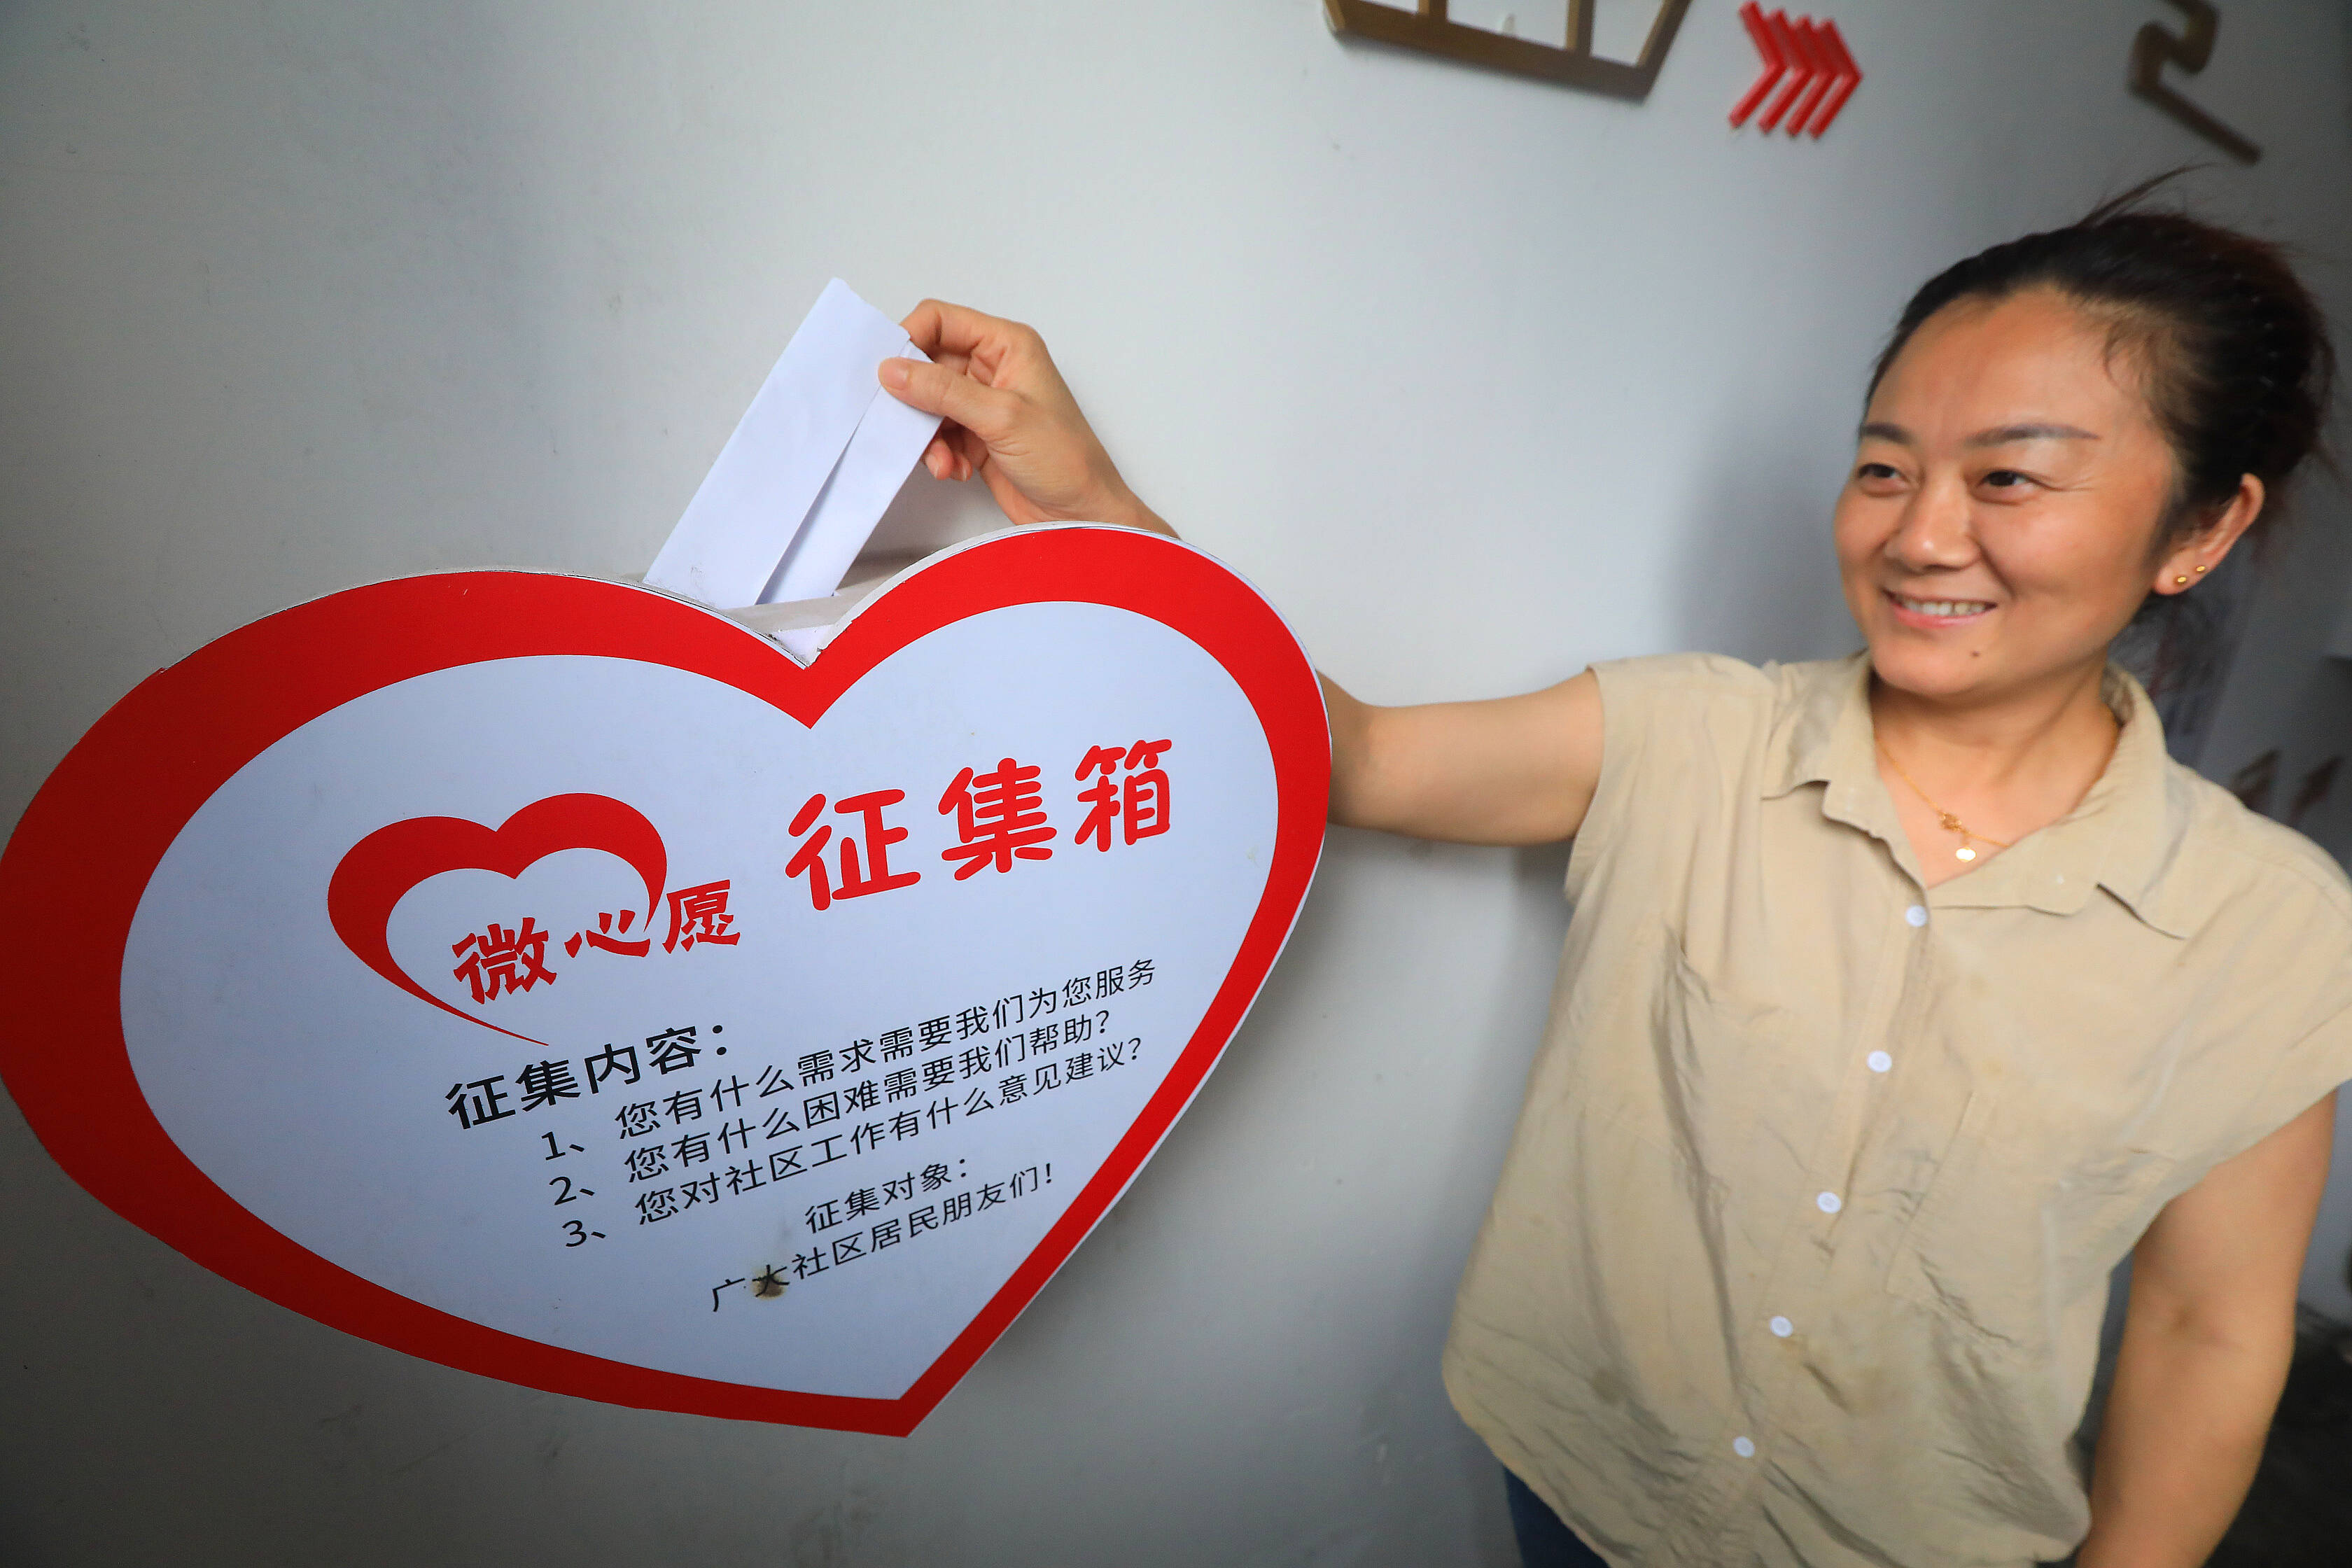 微心愿 征集箱
征集内容：
1、 您有什么需求需要我们为您服务
2、 您有什么困难需要我们帮助？
3、 您对社区工作有什么意见建议？
征集对象：
广大社区居民朋友们！